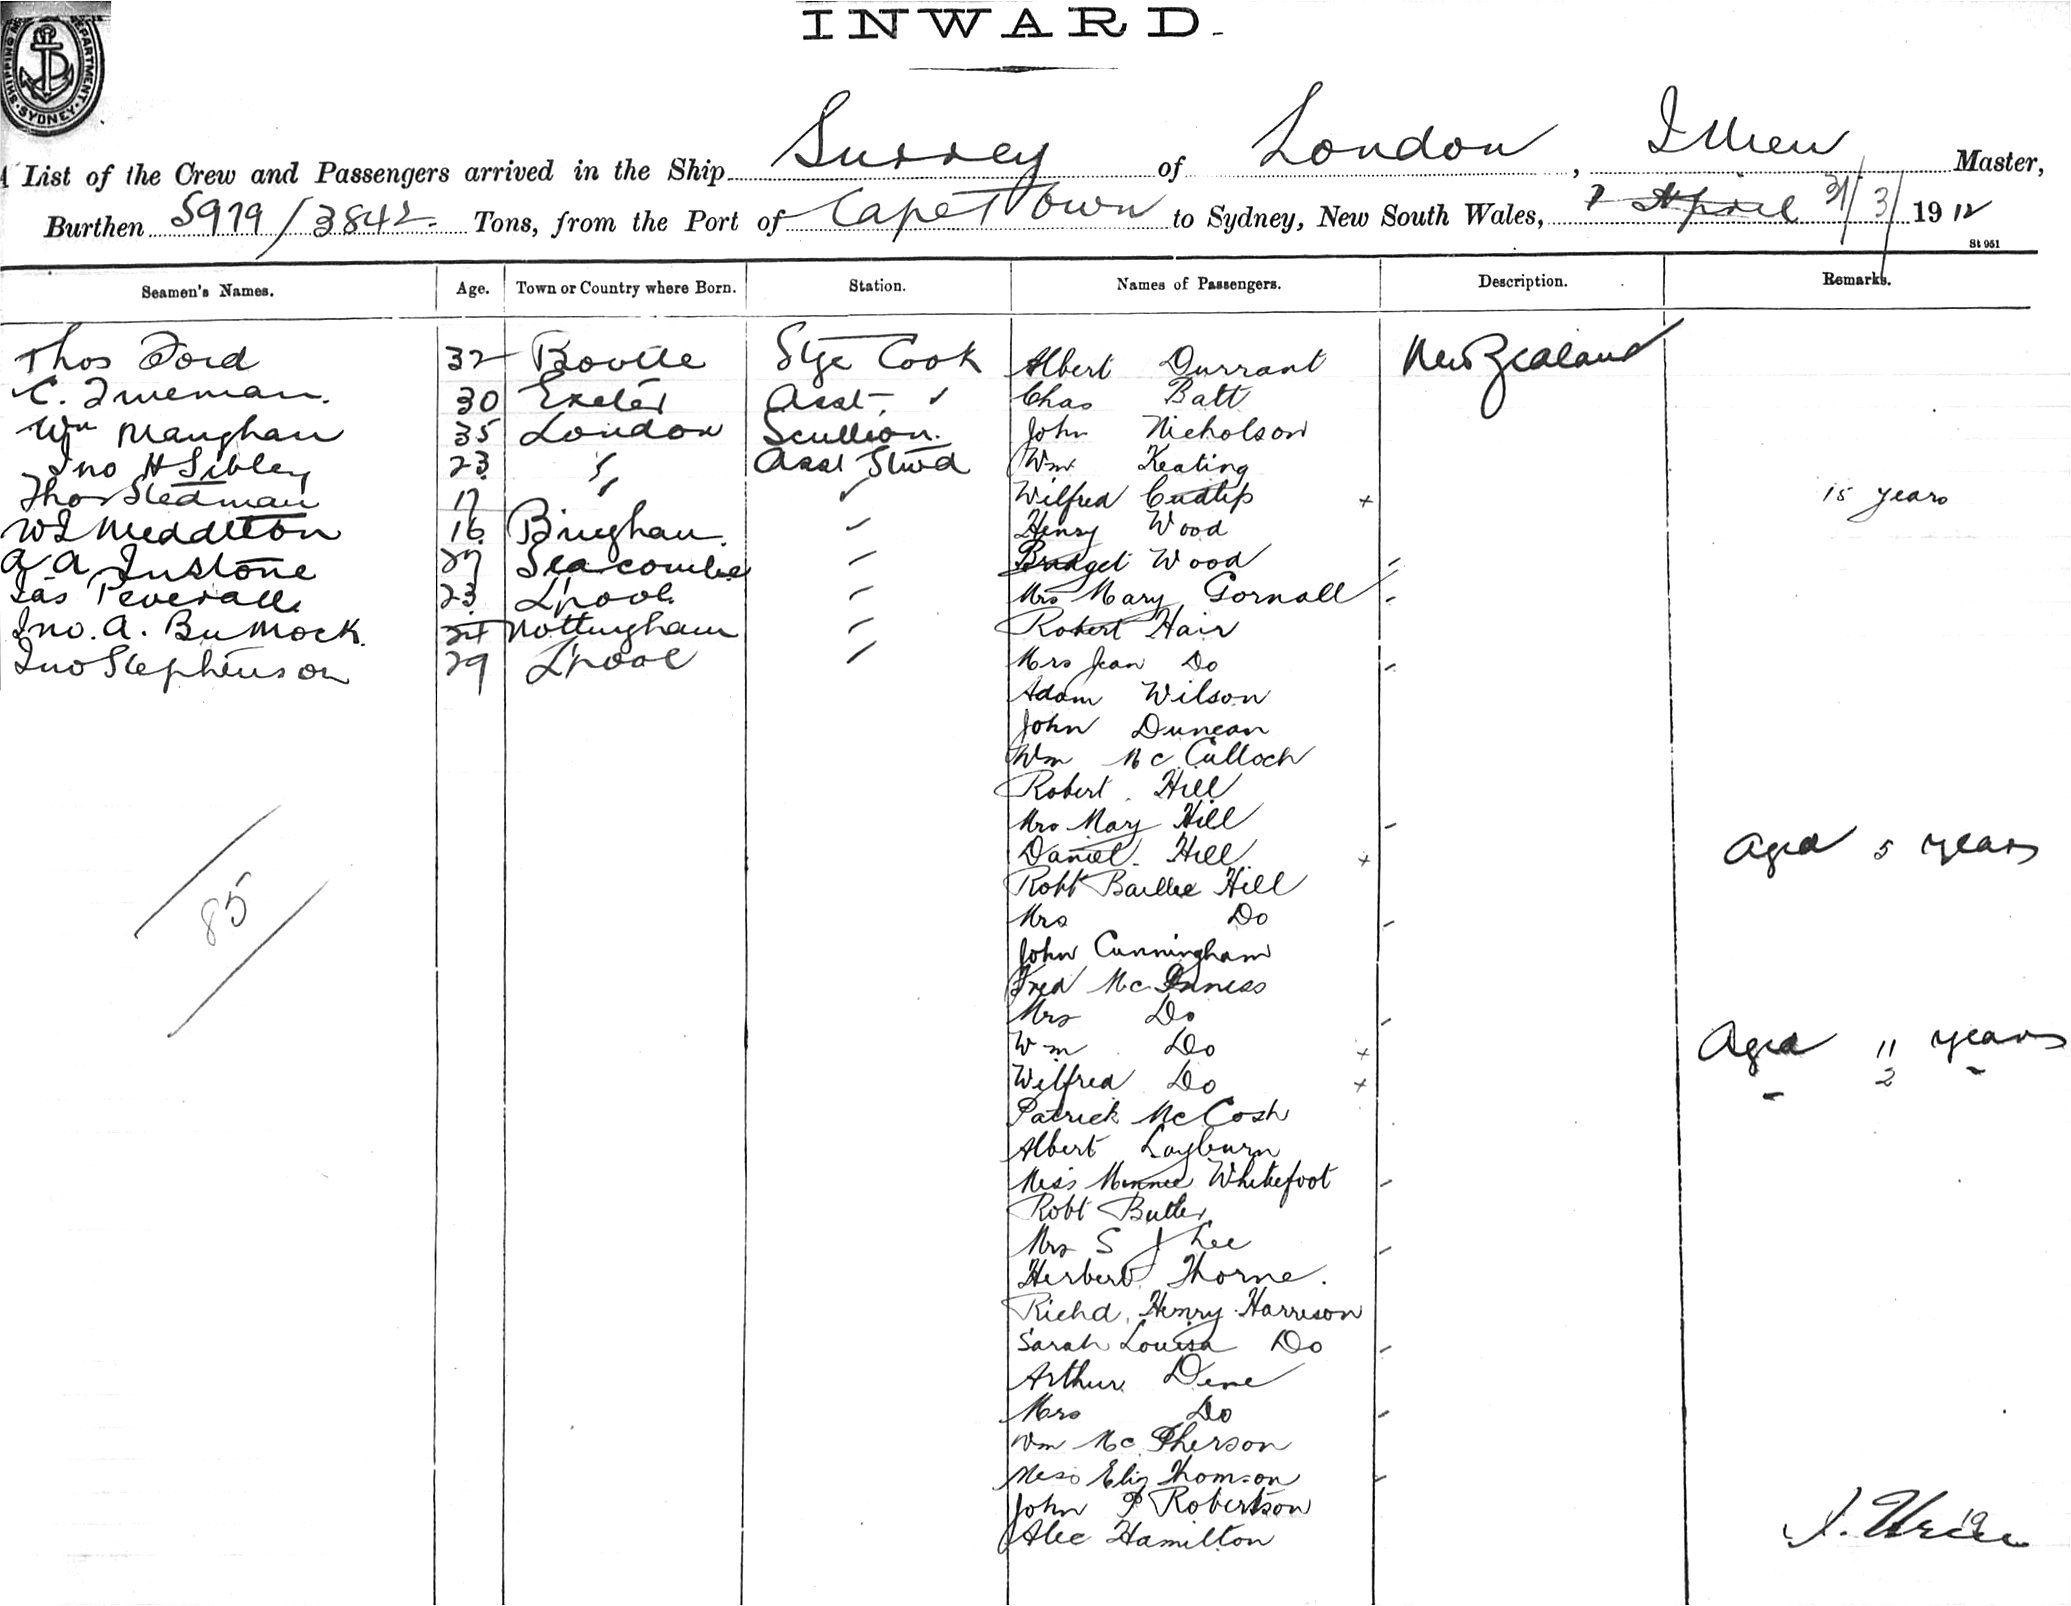 SHIPPING DEPARTMENT SYDNEY
INWARD.
A List of the Crew and Passengers arrived in the Ship Surrey of London, Master,
Burthen 5979/3842 Tons, from the Port of Cape Town to Sydney, New South Wales, 1 April 31/3/1912
St 951
Seamen's Names. Age. Town or Country where Born. Station. Names of Passengers. Description. Remarks.
Thos Ford 32 Bootle Stge Cook Albert Durrant New Zealand
C. Trueman. 30 Exeter Asst. ✓ Chas Batt
Wm Maughan 35 London Scullion. John Nicholson
Jno H Sibley 23 " Asst Stwd Wm Keating
Thos Stedman 17 " ✓ Wilfred Cudlip × 15 years
Middleton 16 Bingham. Henry Wood
A A Instone 27 Seacombe Bridget Wood
Jas Peverall 23 L'pool Mrs Mary Gornall
Jno. A. Bummock 24 Nottingham Robert Hair
Jno Stephenson 29 L'pool Mrs Jean Do
Adam Wilson
John Duncan
Wm McCulloch
Robert Hill
Mrs Mary Hill
Daniel Hill × Aged 5 years
Robt Baillie Hill
85 Mrs Do
John Cunningham
Fred McInness
Mrs Do
Wm Do × Aged 11 years
Wilfred Do × - 2 -
Patrick McCosh
Albert Layburn
Miss Minnie Whitefoot
Robt Butler
Mrs S J Lee
Herbert Thorne.
Richd. Henry Harrison
Sarah Louisa Do
Arthur Dene
Mrs Do
Wm McPherson
Miss Eliz Thomson
John P Robertson
Alec Hamilton